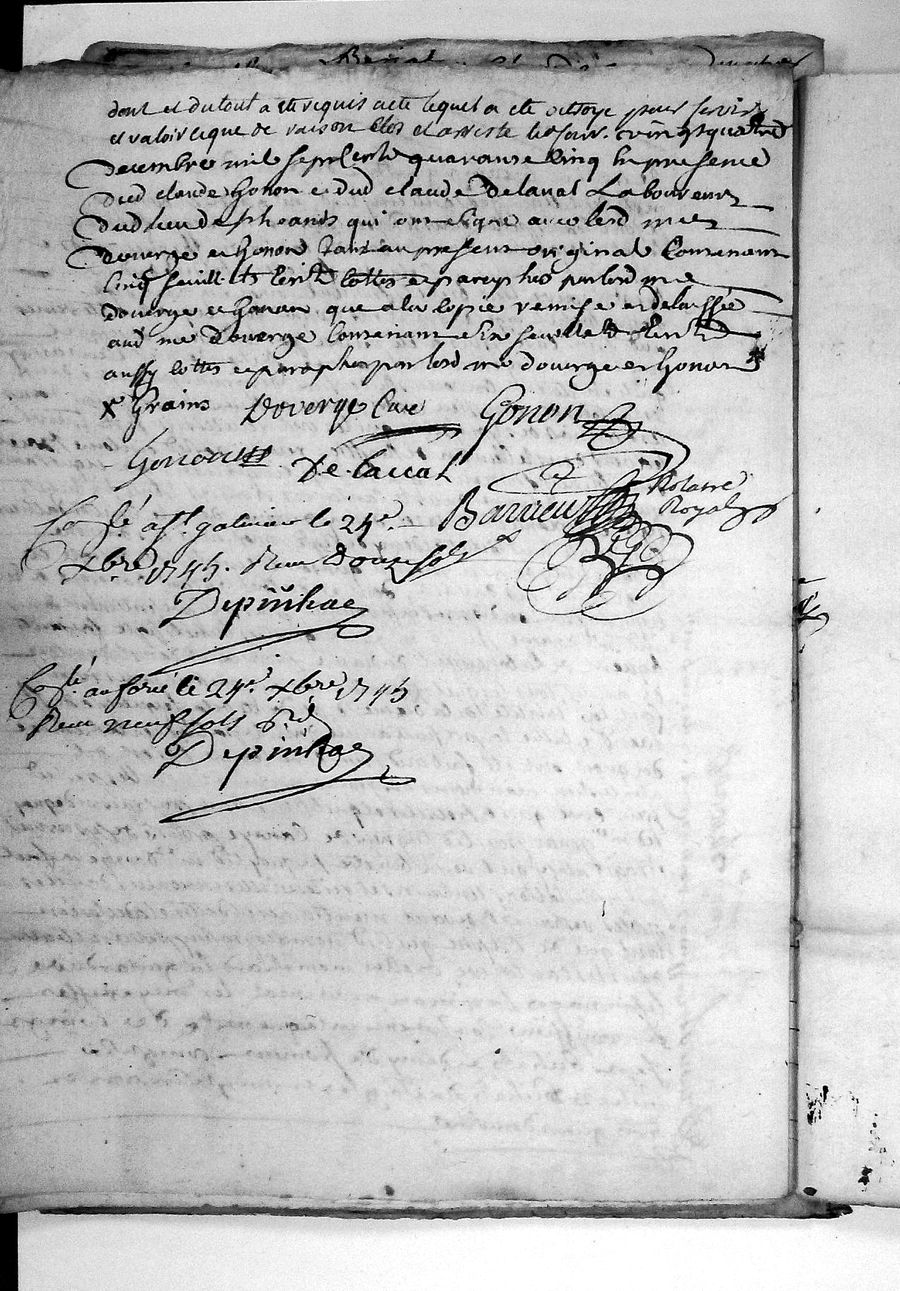 dont et du tout a ete requis acte lequel a ete octroye pour servir
et valoir ce que de raison clos et arreste le jour vingt quatre
decembre mil sept cents quarante cinq en presence
dud claude Gonon et dud claude Delaval Laboureur
dud lieu de qui ont signe avec led me
doverge et Gonon tant au present original contenant
cinq feuillets cottes et paraphes par led me
doverge et Gonon que a la copie remise et delaissée
aud me doverge contenant six feuillets
aussy cottes et paraphes par led me doverge et Gonon
x Grains Doverge Cure Gonon
Gonon De Laval
Barrieu Notaire
Royal
Conlé a St galmier le 24e
xbre 1745. Receu douze sols
Depinhac
Conlé au le 24e xbre 1745
Receu neuf sols
Depinhac